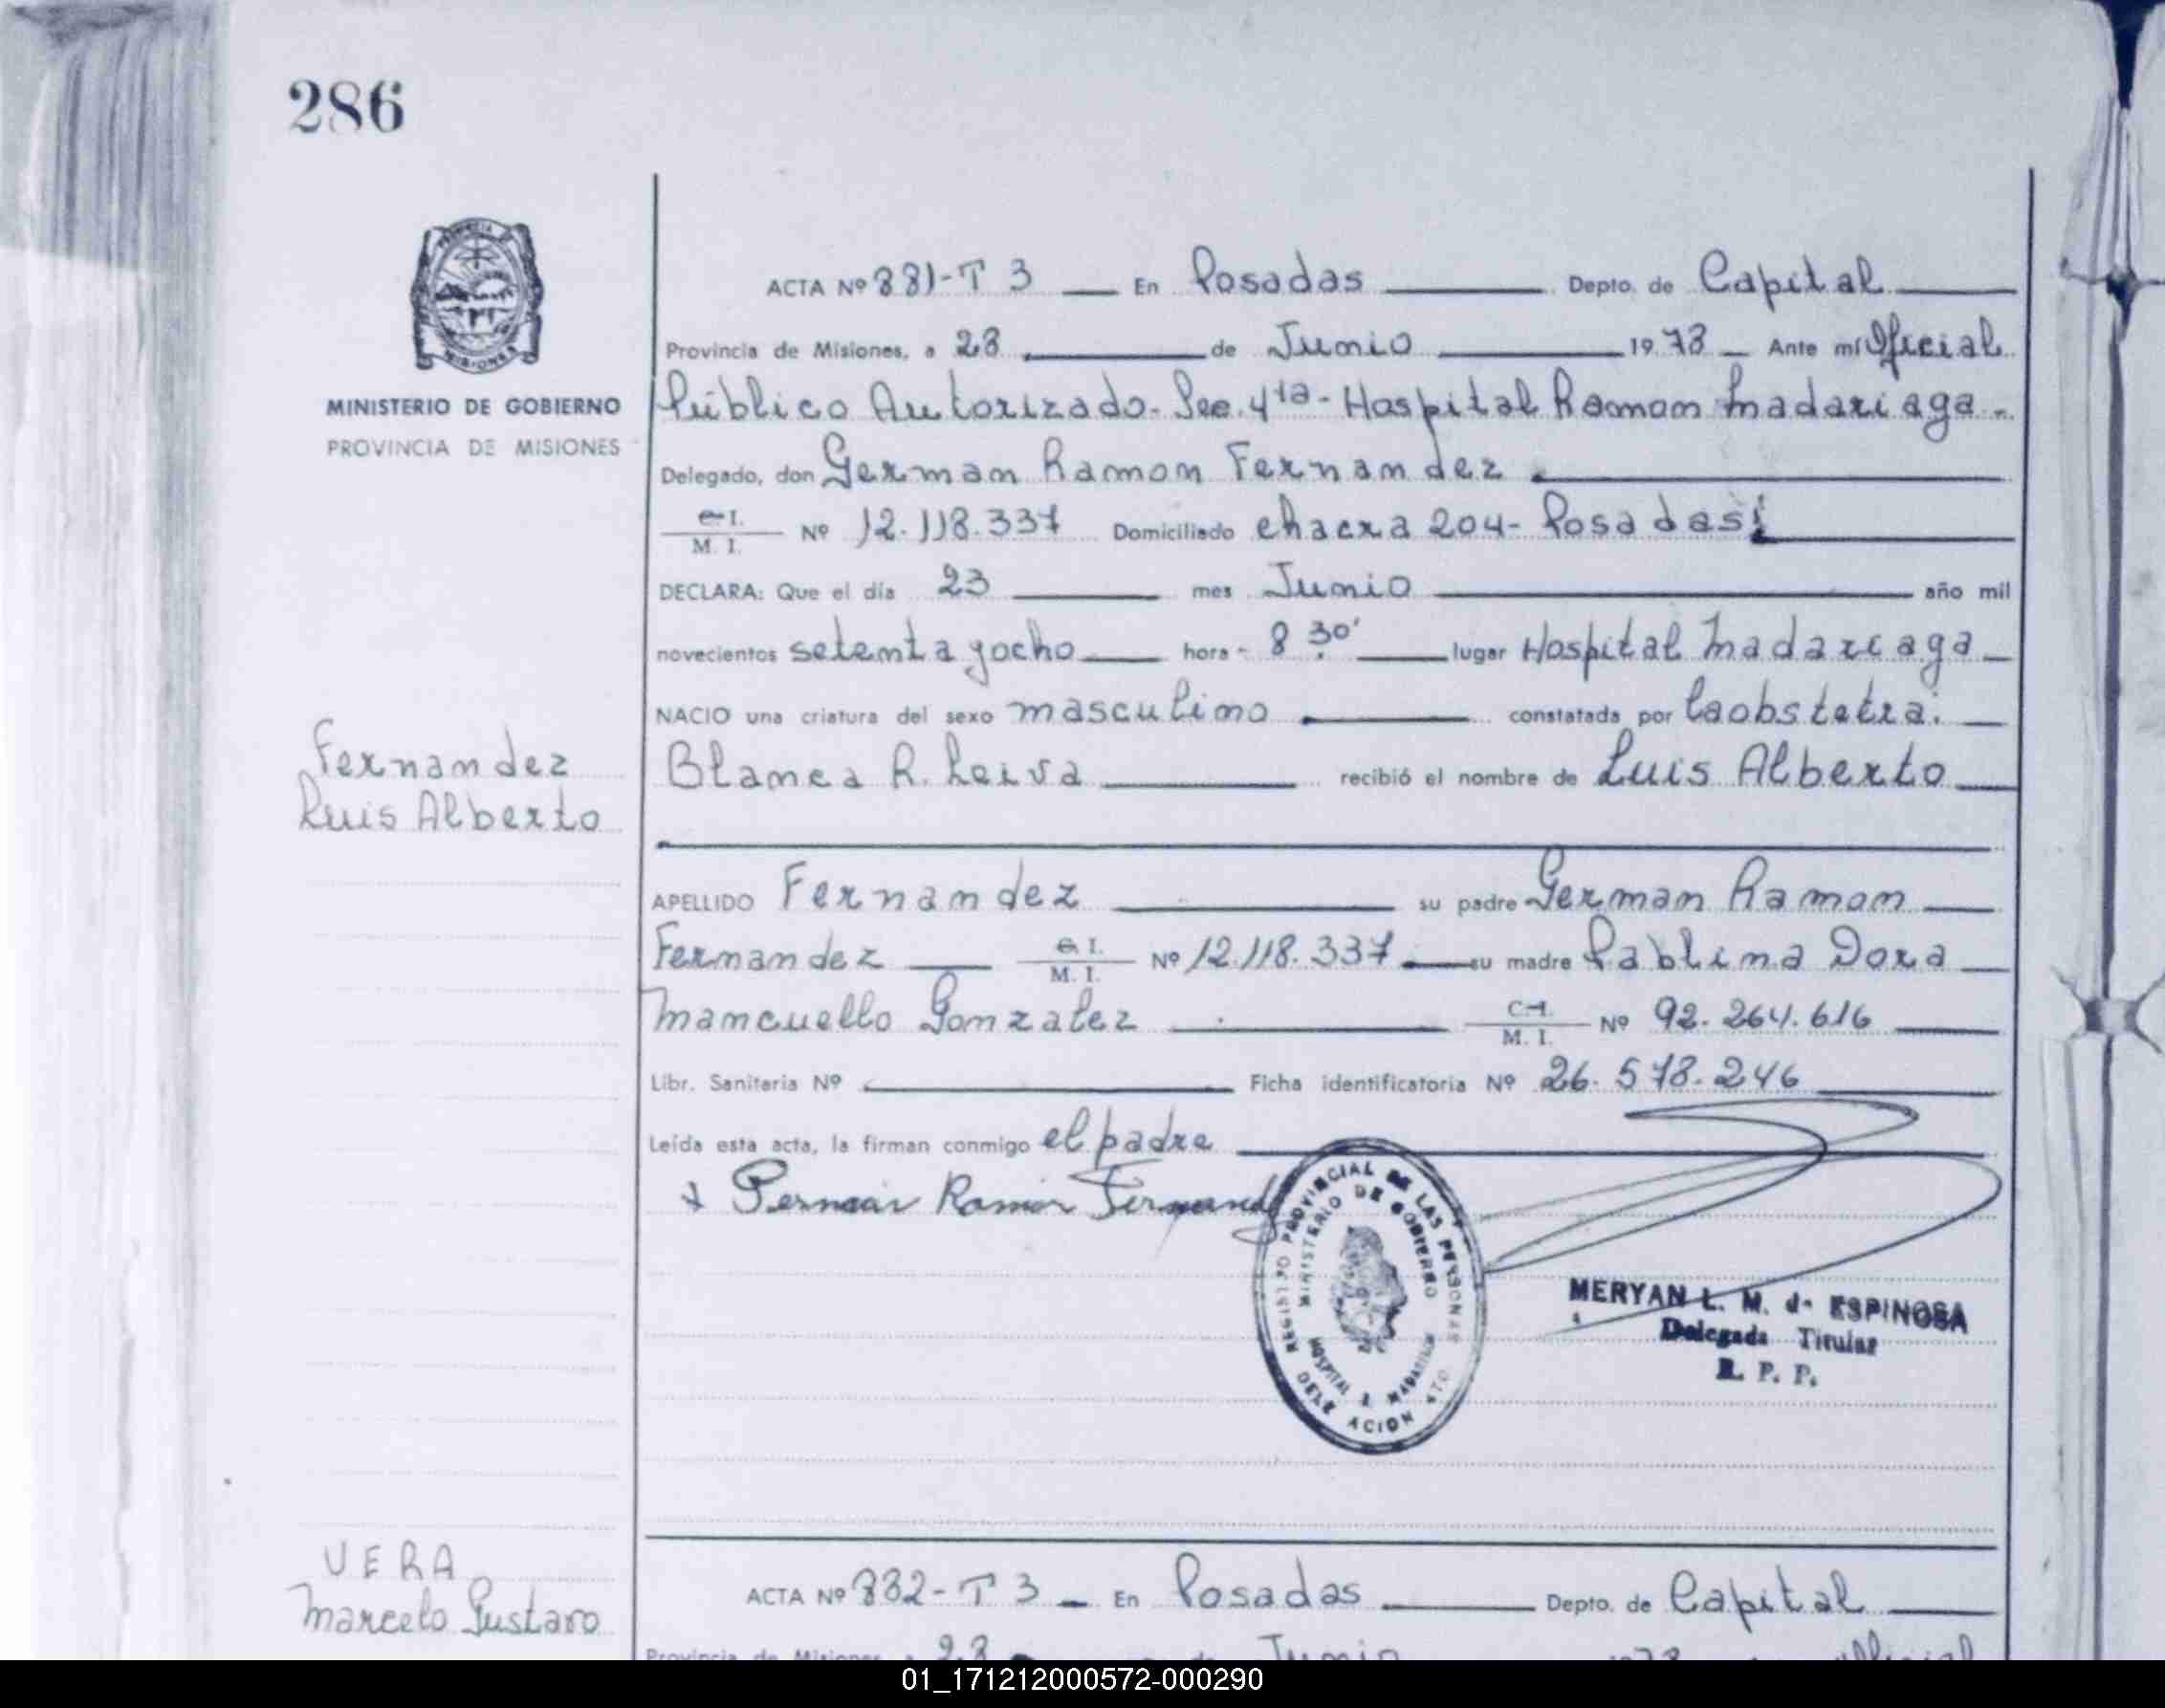 286
PROVINCIA DE
MISIONES
MINISTERIO DE GOBIERNO
PROVINCIA DE MISIONES
ACTA Nº 881-T 3 En Posadas Depto. de Capital
Provincia de Misiones, a 28 de Junio 1978 Ante mí Oficial
Público Autorizado - Sec. 4ta - Hospital Ramon Madariaga -
Delegado, don German Ramon Fernandez
C. I.
M. I. Nº 12.118.337 Domiciliado chacra 204 - Posadas
DECLARA: Que el día 23 mes Junio año mil
novecientos setenta y ocho hora - 8 30' lugar Hospital Madariaga
NACIO una criatura del sexo masculino constatada por la obstetra:
Fernandez
Luis Alberto
Blanca R. Leiva recibió el nombre de Luis Alberto
APELLIDO Fernandez su padre German Ramon
Fernandez C. I.
M. I. Nº 12.118.337 su madre Pablina Dora
Mancuello Gonzalez C. I.
M. I. Nº 92.264.616
Libr. Sanitaria Nº Ficha identificatoria Nº 26.578.246
Leída esta acta, la firman conmigo el padre
German Ramon Fernandez
REGISTRO PROVINCIAL DE LAS PERSONAS
MINISTERIO DE GOBIERNO
HOSPITAL R. MADARIAGA
DELEGACION 4TO
MERYAN L. M. de ESPINOSA
Delegada Titular
R. P. P.
VERA
Marcelo Gustavo
ACTA Nº 882-T 3 En Posadas Depto. de Capital
Provincia de Misiones, a 28 de Junio 1978 Oficial
01_171212000572-000290